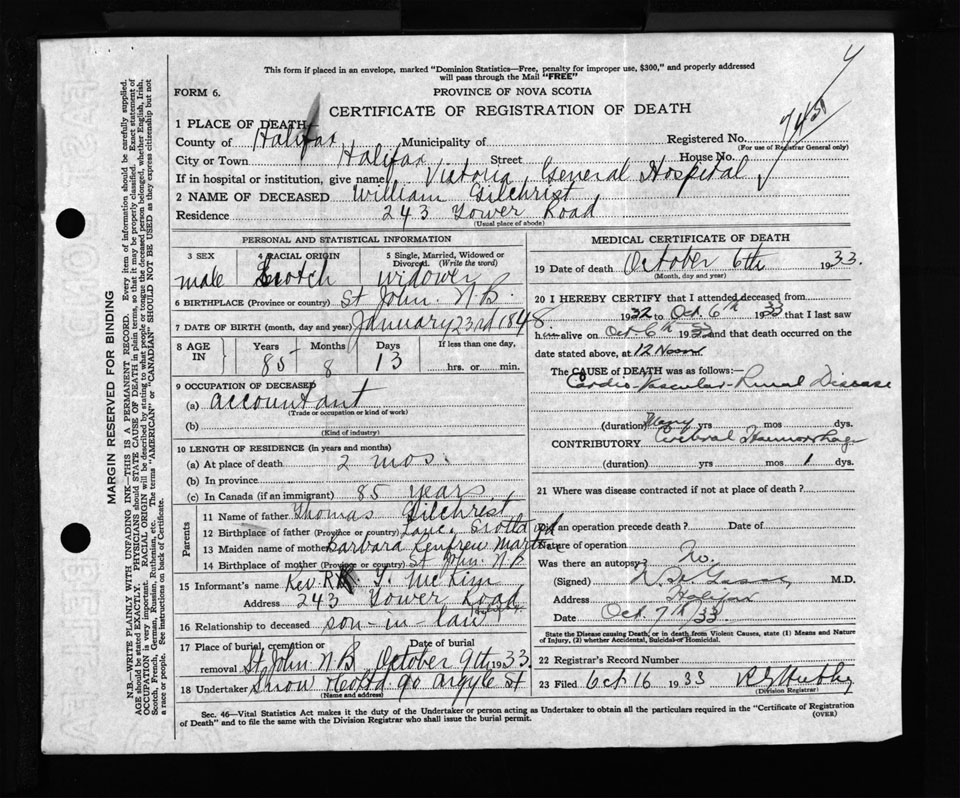 This form if placed in an envelope, marked "Dominion Statistics—Free, penalty for improper use, $300," and properly addressed
will pass through the Mail "FREE"
FORM 6.
PROVINCE OF NOVA SCOTIA
CERTIFICATE OF REGISTRATION OF DEATH
1 PLACE OF DEATH
County of Halifax Municipality of Registered No.
(For use of Registrar General only)
City or Town Halifax Street House No.
If in hospital or institution, give name Victoria General Hospital
2 NAME OF DECEASED William Gilchrist
Residence 243 Tower Road
(Usual place of abode)
PERSONAL AND STATISTICAL INFORMATION
3 SEX 4 RACIAL ORIGIN 5 Single, Married, Widowed or
Divorced. (Write the word)
male Scotch widower
6 BIRTHPLACE (Province or country) St John. N.B.
7 DATE OF BIRTH (month, day and year) January 23rd 1848.
8 AGE IN Years Months Days If less than one day,
85 8 13 hrs. or min.
9 OCCUPATION OF DECEASED
(a) accountant
(Trade or occupation or kind of work)
(b)
(Kind of industry)
10 LENGTH OF RESIDENCE (in years and months)
(a) At place of death 2 mos.
(b) In province
(c) In Canada (if an immigrant) 85 years
Parents
11 Name of father Thomas Gilchrist
12 Birthplace of father (Province or country) Scotland
13 Maiden name of mother Barbara Renfrew Martin
14 Birthplace of mother (Province or country) St John. N B
15 Informant's name Rev. R Y. McKim
Address 243 Tower Road
Halifax
16 Relationship to deceased son-in-law
17 Place of burial, cremation or removal Date of burial
St John N B October 9th 1933.
18 Undertaker Snow & Co Ltd 90 Argyle St
(Name and address)
MEDICAL CERTIFICATE OF DEATH
19 Date of death October 6th 1933.
(Month, day and year)
20 I HEREBY CERTIFY that I attended deceased from
1932 to Oct. 6th 1933 that I last saw
him alive on Oct 6th 1933 and that death occurred on the
date stated above, at 12 Noon
The CAUSE OF DEATH was as follows:—
Cardio-Vascular-Renal Disease
(duration) Many yrs mos dys.
CONTRIBUTORY Cerebral Haemorrhage
(duration) yrs mos 1 dys.
21 Where was disease contracted if not at place of death?
Did an operation precede death? Date of
Nature of operation
Was there an autopsy? No.
(Signed) M.D.
Address Halifax
Date Oct. 7th/33.
State the Disease causing Death, or in death from Violent Causes, state (1) Means and Nature
of Injury, (2) whether Accidental, Suicidal or Homicidal.
22 Registrar's Record Number
23 Filed Oct 16 1933
(Division Registrar)
Sec. 46—Vital Statistics Act makes it the duty of the Undertaker or person acting as Undertaker to obtain all the particulars required in the "Certificate of Registration
of Death" and to file the same with the Division Registrar who shall issue the burial permit.
(OVER)
MARGIN RESERVED FOR BINDING
N.B.—WRITE PLAINLY WITH UNFADING INK—THIS IS A PERMANENT RECORD. Every item of information should be carefully supplied.
AGE should be stated EXACTLY. PHYSICIANS should STATE CAUSE OF DEATH in plain terms, so that it may be properly classified. Exact statement of
OCCUPATION is very important. RACIAL ORIGIN will be described by stating to what people or tongue the deceased person belonged, whether English, Irish,
Scotch, French, German, Russian, Ruthenian, etc. The terms "AMERICAN" or "CANADIAN" SHOULD NOT BE USED as they express citizenship but not
a race or people. See instructions on back of Certificate.